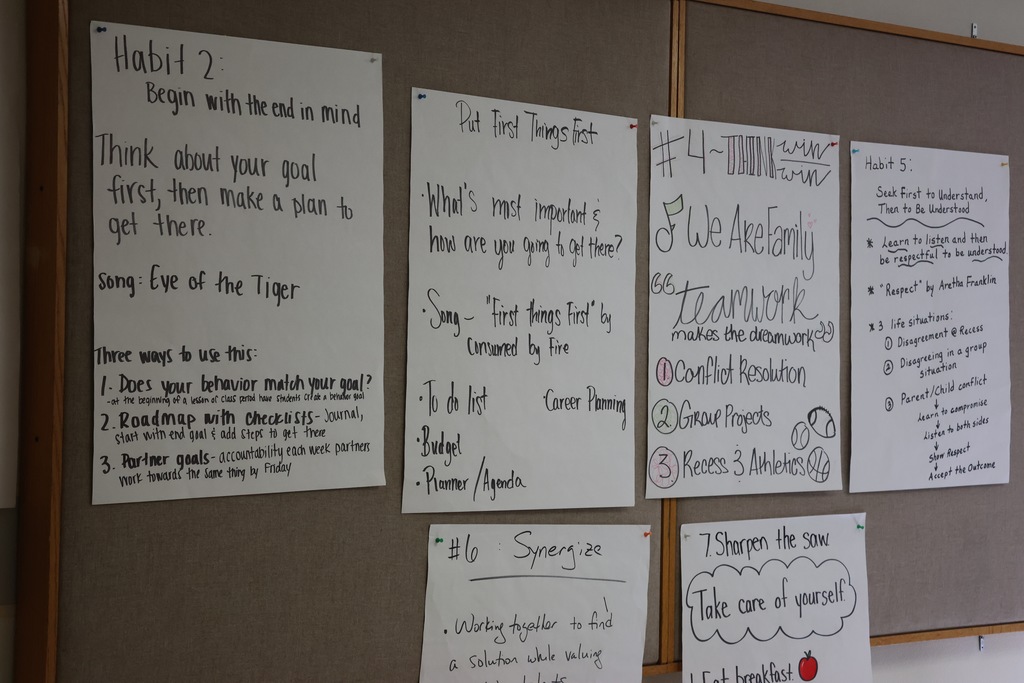 Habit 2:
Begin with the end in mind
Think about your goal
first, then make a plan to
get there.
song: Eye of the Tiger
Three ways to use this:
1. Does your behavior match your goal?
-at the beginning of a lesson or class period have students create a behavior goal
2. Roadmap with checklists - Journal,
start with end goal & add steps to get there
3. Partner goals - accountability each week partners
work towards the same thing by Friday
Put First Things First
· What's most important &
how are you going to get there?
· Song - "First things First" by
Consumed by Fire
· To do list · Career Planning
· Budget
· Planner / Agenda
#4~THINK win
win
We Are Family
"teamwork
makes the dreamwork"
1 Conflict Resolution
2 Group Projects
3 Recess & Athletics
Habit 5:
Seek First to Understand,
Then to Be Understood
* Learn to listen and then
be respectful to be understood.
* "Respect" by Aretha Franklin
* 3 life situations:
1 Disagreement @ Recess
2 Disagreeing in a group
situation
3 Parent/Child conflict
Learn to compromise
Listen to both sides
Show Respect
Accept the Outcome
#6: Synergize
· Working together to find
a solution while valuing
7. Sharpen the saw
Take care of yourself.
1. Eat breakfast.